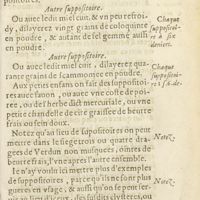 Autre suppositoire.
Ou auec ledit miel cuit, & vn peu refroi-
dy, dilayerez vingt grains de coloquinte
en poudre, & autant de sel gemme aussi
en poudre.
Chaque
suppositoi-
re à 5 ʃ.
deniers.
Autre suppositoire.
Ou auec ledit miel cuit, dilayerez qua-
rante grains de scammonee en poudre.
Aux petits enfans on fait des suppositoi-
res auec sauon, ou auec vne coste de poi-
ree, ou del herbe dict mercuriale, ou vne
petite chandelle de cire graissee de beurre
frais ou sein doux.
Chaque
suppositoi-
re
Notez qu'au lieu de suppositoires on peut
mettre dans le siege trois ou quatre dra-
gees de Verdun non musquees, ointes de
beurre frais, l'vne apres l'autre ensemble.
Notez.
Ie n'ay voulu icy mettre plus d'exemples
de suppositoires, parce qu'ils ne sont plus
gueres en vsage, & aussi qu'on se peut ser-
Notez.